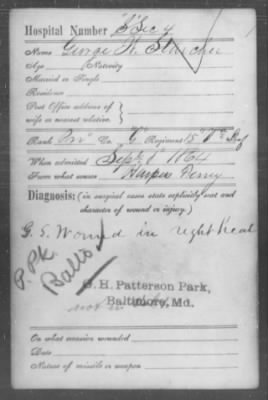 Hospital Number
Name George H.
Age Nativity
Married or Single
Residence
Post Office address of
wife or nearest relative.
Rank Pri Co. "G" Regiment 15"
When admitted Sept 8 1864
From what source Harpers Ferry
Diagnosis: (in surgical cases state explicitly seat and
character of wound or injury.)
G. S. Wound in right heel
P. Pk.
Balto
G. H. Patterson Park,
Baltimore, Md.
On what occasion wounded
Date
Nature of missile or weapon